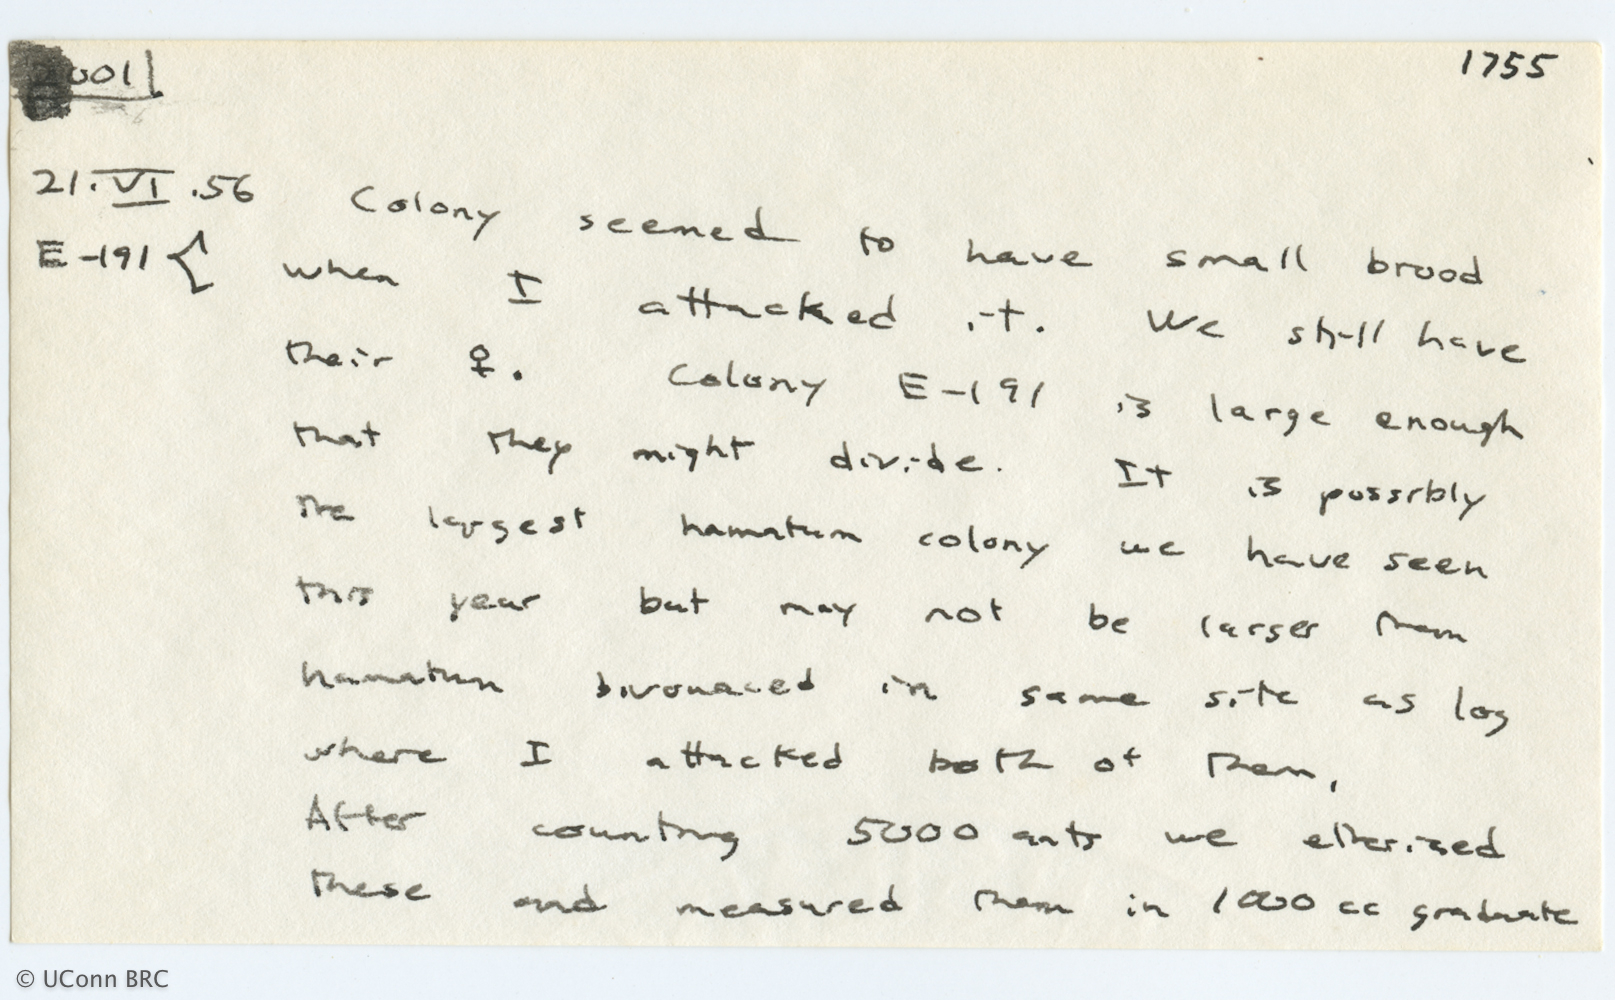 001
1755
21.VI.56 Colony seemed to have small brood
E-191 { when I attacked it. We still have
their ♀. Colony E-191 is large enough
that they might divide. It is possibly
the largest hamatum colony we have seen
this year but may not be larger than
hamatum bivouaced in same site as log
where I attacked both of them.
After counting 5000 ants we etherized
these and measured them in 1000 cc graduate
© UConn BRC